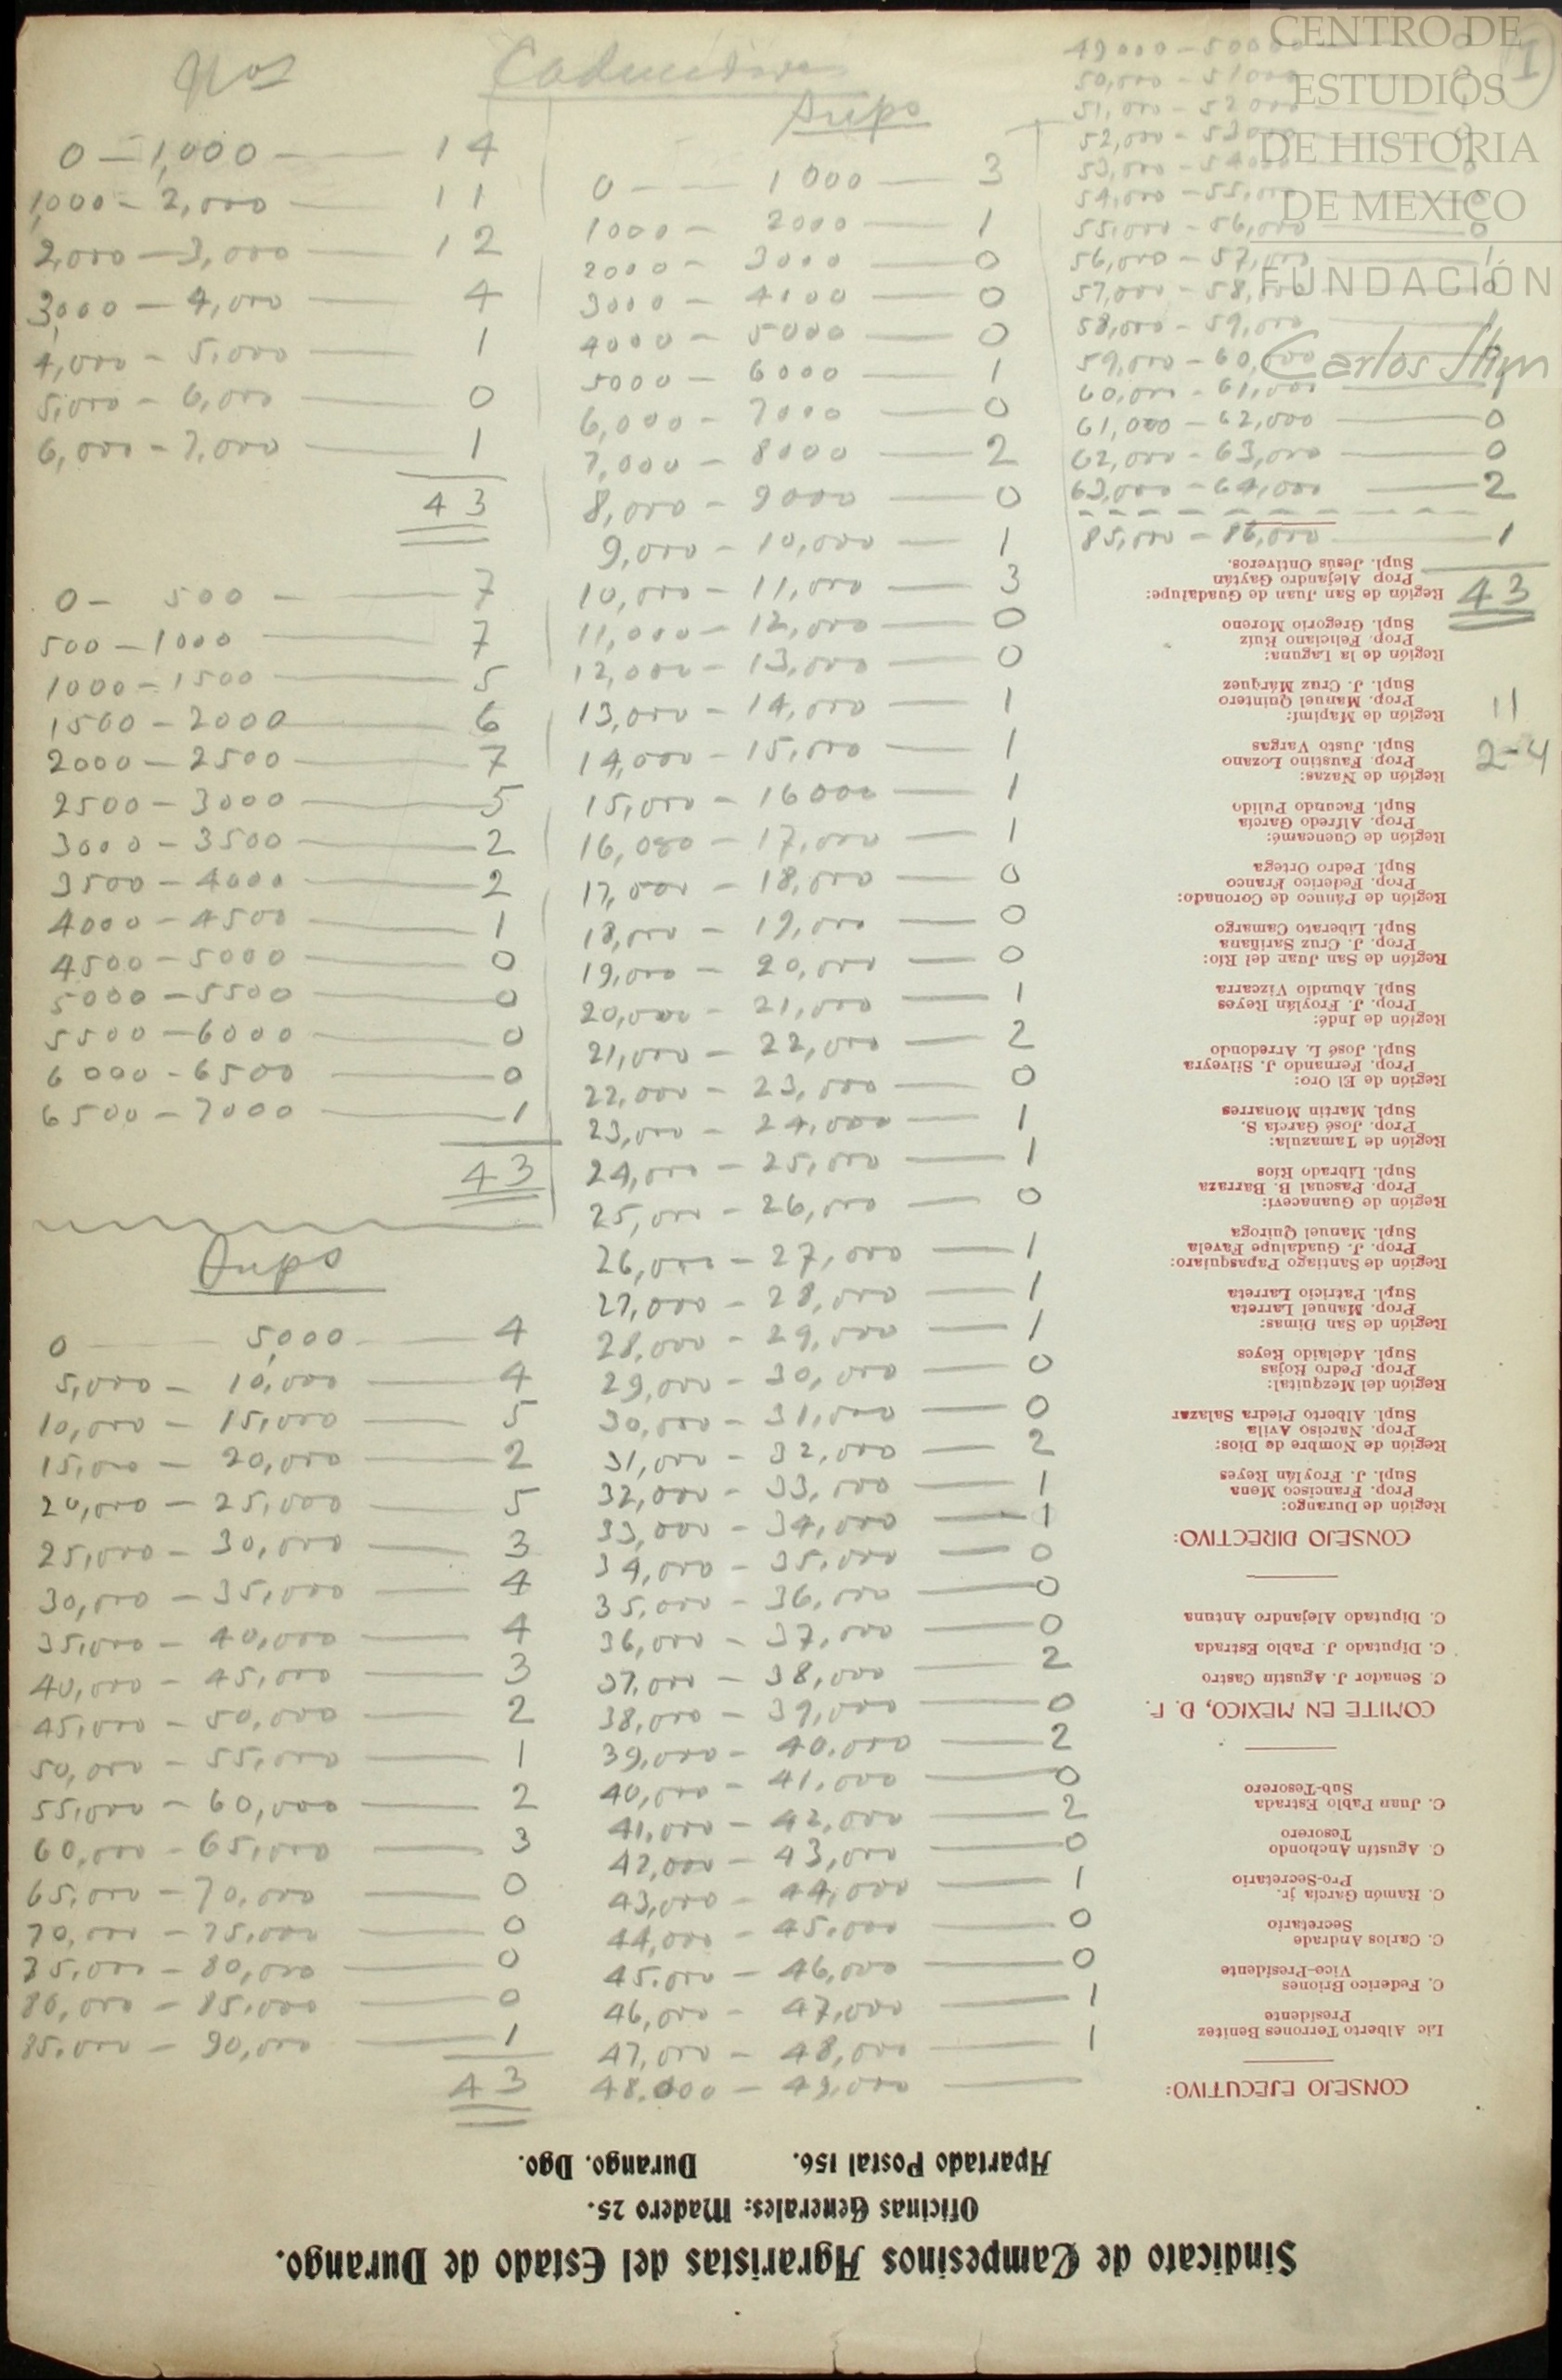 Nos
0 — 1,000 — 14
1,000 — 2,000 — 11
2,000 — 3,000 — 12
3,000 — 4,000 — 4
4,000 — 5,000 — 1
5,000 — 6,000 — 0
6,000 — 7,000 — 1
43
0 — 500 — 7
500 — 1000 — 7
1000 — 1500 — 5
1500 — 2000 — 6
2000 — 2500 — 7
2500 — 3000 — 5
3000 — 3500 — 2
3500 — 4000 — 2
4000 — 4500 — 1
4500 — 5000 — 0
5000 — 5500 — 0
5500 — 6000 — 0
6000 — 6500 — 0
6500 — 7000 — 1
43
0 — 5,000 — 4
5,000 — 10,000 — 4
10,000 — 15,000 — 5
15,000 — 20,000 — 2
20,000 — 25,000 — 5
25,000 — 30,000 — 3
30,000 — 35,000 — 4
35,000 — 40,000 — 4
40,000 — 45,000 — 3
45,000 — 50,000 — 2
50,000 — 55,000 — 1
55,000 — 60,000 — 2
60,000 — 65,000 — 3
65,000 — 70,000 — 0
70,000 — 75,000 — 0
75,000 — 80,000 — 0
80,000 — 85,000 — 0
85,000 — 90,000 — 1
43
0 — 1000 — 3
1000 — 2000 — 1
2000 — 3000 — 0
3000 — 4000 — 0
4000 — 5000 — 0
5000 — 6000 — 1
6,000 — 7000 — 0
7,000 — 8000 — 2
8,000 — 9000 — 0
9,000 — 10,000 — 1
10,000 — 11,000 — 3
11,000 — 12,000 — 0
12,000 — 13,000 — 0
13,000 — 14,000 — 1
14,000 — 15,000 — 1
15,000 — 16000 — 1
16,000 — 17,000 — 1
17,000 — 18,000 — 0
18,000 — 19,000 — 0
19,000 — 20,000 — 0
20,000 — 21,000 — 1
21,000 — 22,000 — 2
22,000 — 23,000 — 0
23,000 — 24,000 — 1
24,000 — 25,000 — 1
25,000 — 26,000 — 0
26,000 — 27,000 — 1
27,000 — 28,000 — 1
28,000 — 29,000 — 1
29,000 — 30,000 — 0
30,000 — 31,000 — 0
31,000 — 32,000 — 2
32,000 — 33,000 — 1
33,000 — 34,000 — 1
34,000 — 35,000 — 0
35,000 — 36,000 — 0
36,000 — 37,000 — 0
37,000 — 38,000 — 2
38,000 — 39,000 — 0
39,000 — 40,000 — 2
40,000 — 41,000 — 0
41,000 — 42,000 — 2
42,000 — 43,000 — 0
43,000 — 44,000 — 1
44,000 — 45,000 — 0
45,000 — 46,000 — 0
46,000 — 47,000 — 1
47,000 — 48,000 — 1
48,000 — 49,000 —
49000 — 50000
50,000 — 51000
51,000 — 52000
52,000 — 53000
53,000 — 54000
54,000 — 55,000
55,000 — 56,000 — 0
56,000 — 57,000 — 1
57,000 — 58,000 — 0
58,000 — 59,000 — 1
59,000 — 60,000
60,000 — 61,000 — 1
61,000 — 62,000 — 0
62,000 — 63,000 — 0
63,000 — 64,000 — 2
85,000 — 86,000 — 1
43
11
2-4
CENTRO DE
ESTUDIOS
DE HISTORIA
DE MEXICO
FUNDACIÓN
Carlos Slim
Sindicato de Campesinos Agraristas del Estado de Durango.
Oficinas Generales: Madero 25.
Apartado Postal 156. Durango. Dgo.
CONSEJO EJECUTIVO:
Lic Alberto Terrones Benítez
Presidente
C. Federico Briones
Vice-Presidente
C. Carlos Andrade
Secretario
C. Ramón García jr.
Pro-Secretario
C. Agustín Anchondo
Tesorero
C. Juan Pablo Estrada
Sub-Tesorero
COMITE EN MEXICO, D. F.
C. Senador J. Agustín Castro
C. Diputado J. Pablo Estrada
C. Diputado Alejandro Antuna
CONSEJO DIRECTIVO:
Región de Durango:
Prop. Francisco Mena
Supl. J. Froylán Reyes
Región de Nombre de Dios:
Prop. Narciso Avila
Supl. Alberto Piedra Salazar
Región del Mezquital:
Prop. Pedro Rojas
Supl. Adelaido Reyes
Región de San Dimas:
Prop. Manuel Larreta
Supl. Patricio Larreta
Región de Santiago Papasquiaro:
Prop. J. Guadalupe Favela
Supl. Manuel Quiroga
Región de Guanaceví:
Prop. Pascual B. Barraza
Supl. Librado Ríos
Región de Tamazula:
Prop. José García S.
Supl. Martín Monarres
Región de El Oro:
Prop. Fernando J. Silveyra
Supl. José L. Arredondo
Región de Indé:
Prop. J. Froylán Reyes
Supl. Abundio Vizcarra
Región de San Juan del Río:
Prop. J. Cruz Sariñana
Supl. Liberato Camargo
Región de Pánuco de Coronado:
Prop. Federico Franco
Supl. Pedro Ortega
Región de Cuencamé:
Prop. Alfredo García
Supl. Facundo Pulido
Región de Nazas:
Prop. Faustino Lozano
Supl. Justo Vargas
Región de Mapimí:
Prop. Manuel Quintero
Supl. J. Cruz Márquez
Región de la Laguna:
Prop. Feliciano Ruiz
Supl. Gregorio Moreno
Región de San Juan de Guadalupe:
Prop Alejandro Gaytán
Supl. Jesús Ontiveros.